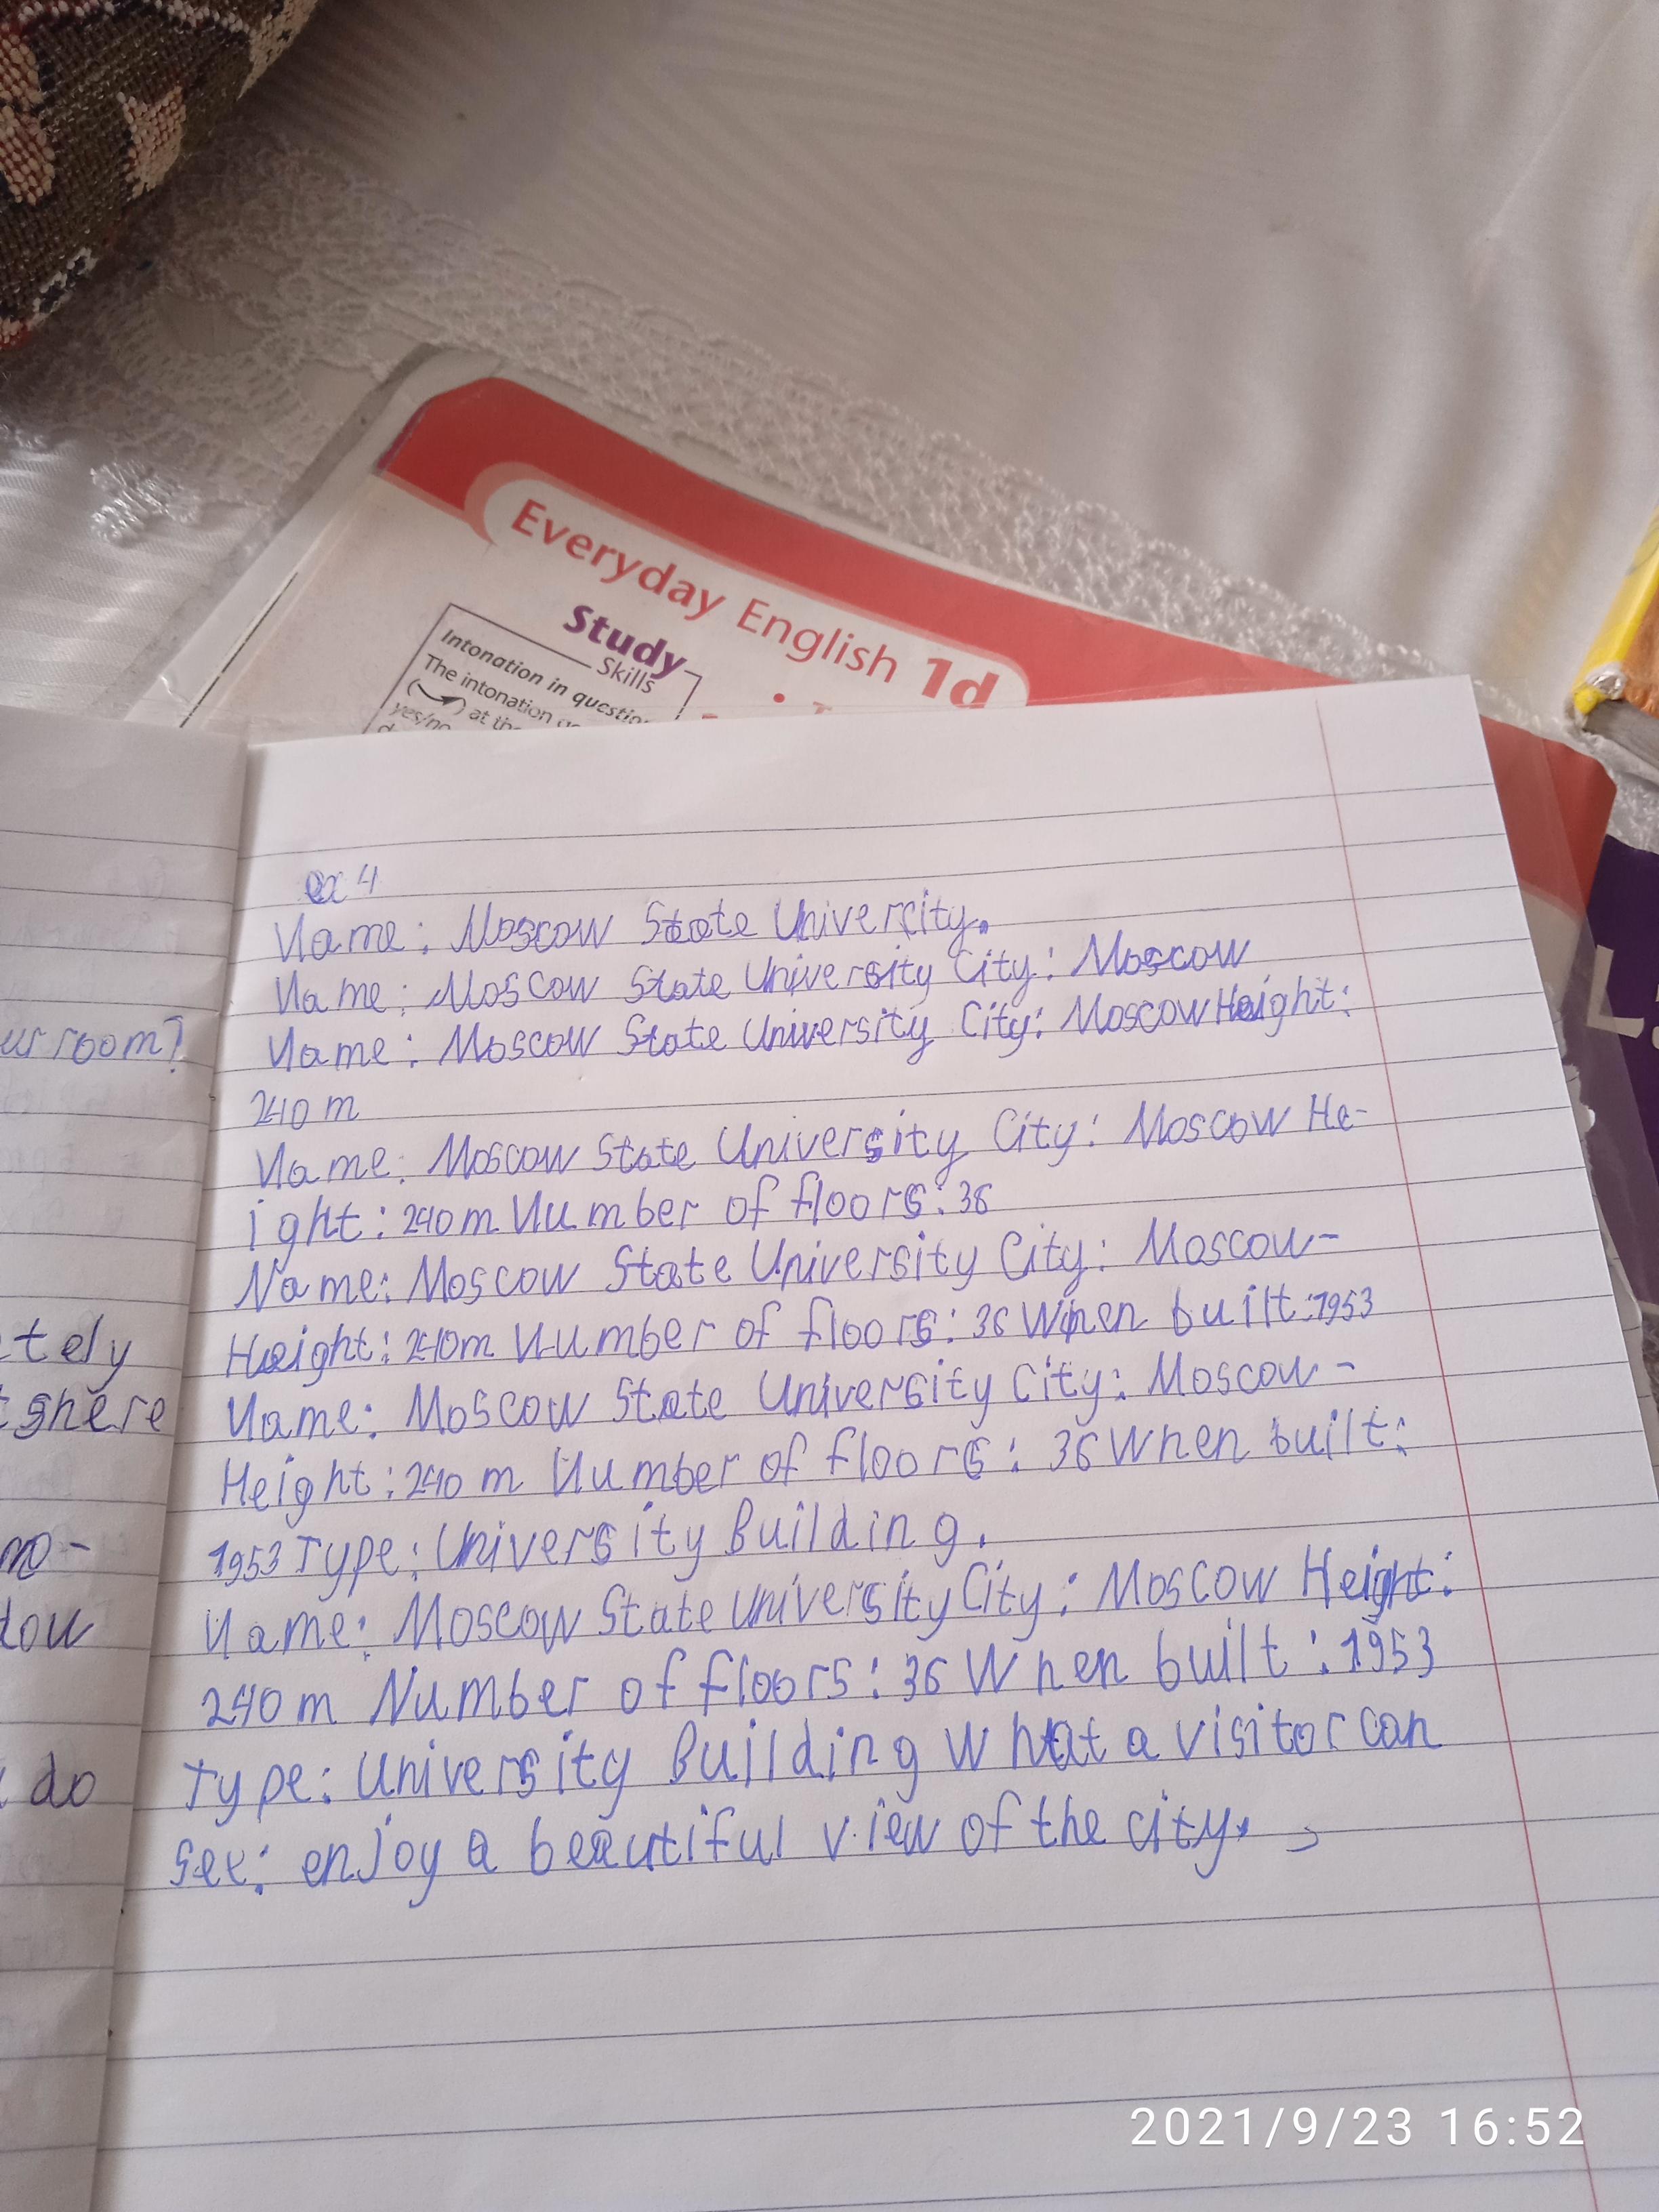 Everyday English 1d
Study
Skills
Intonation in questio
The intonation
at the
yes/no
ex 4
Name: Moscow State University.
Name: Moscow State University City: Moscow
Name: Moscow State University City: Moscow Height:
240 m
Name: Moscow State University City: Moscow He-
ight: 240 m Number of floors: 36
Name: Moscow State University City: Moscow-
Height: 240m Number of floors: 36 When built: 1953
Name: Moscow State University City: Moscow-
Height: 240 m Number of floors: 36 When built:
1953 Type: University Building.
Name: Moscow State University City: Moscow Height:
240 m Number of floors: 36 When built: 1953
Type: University Building What a visitor can
see: enjoy a beautiful view of the city.
ur room?
tely
ghere
mo-
dow
do
2021/9/23 16:52